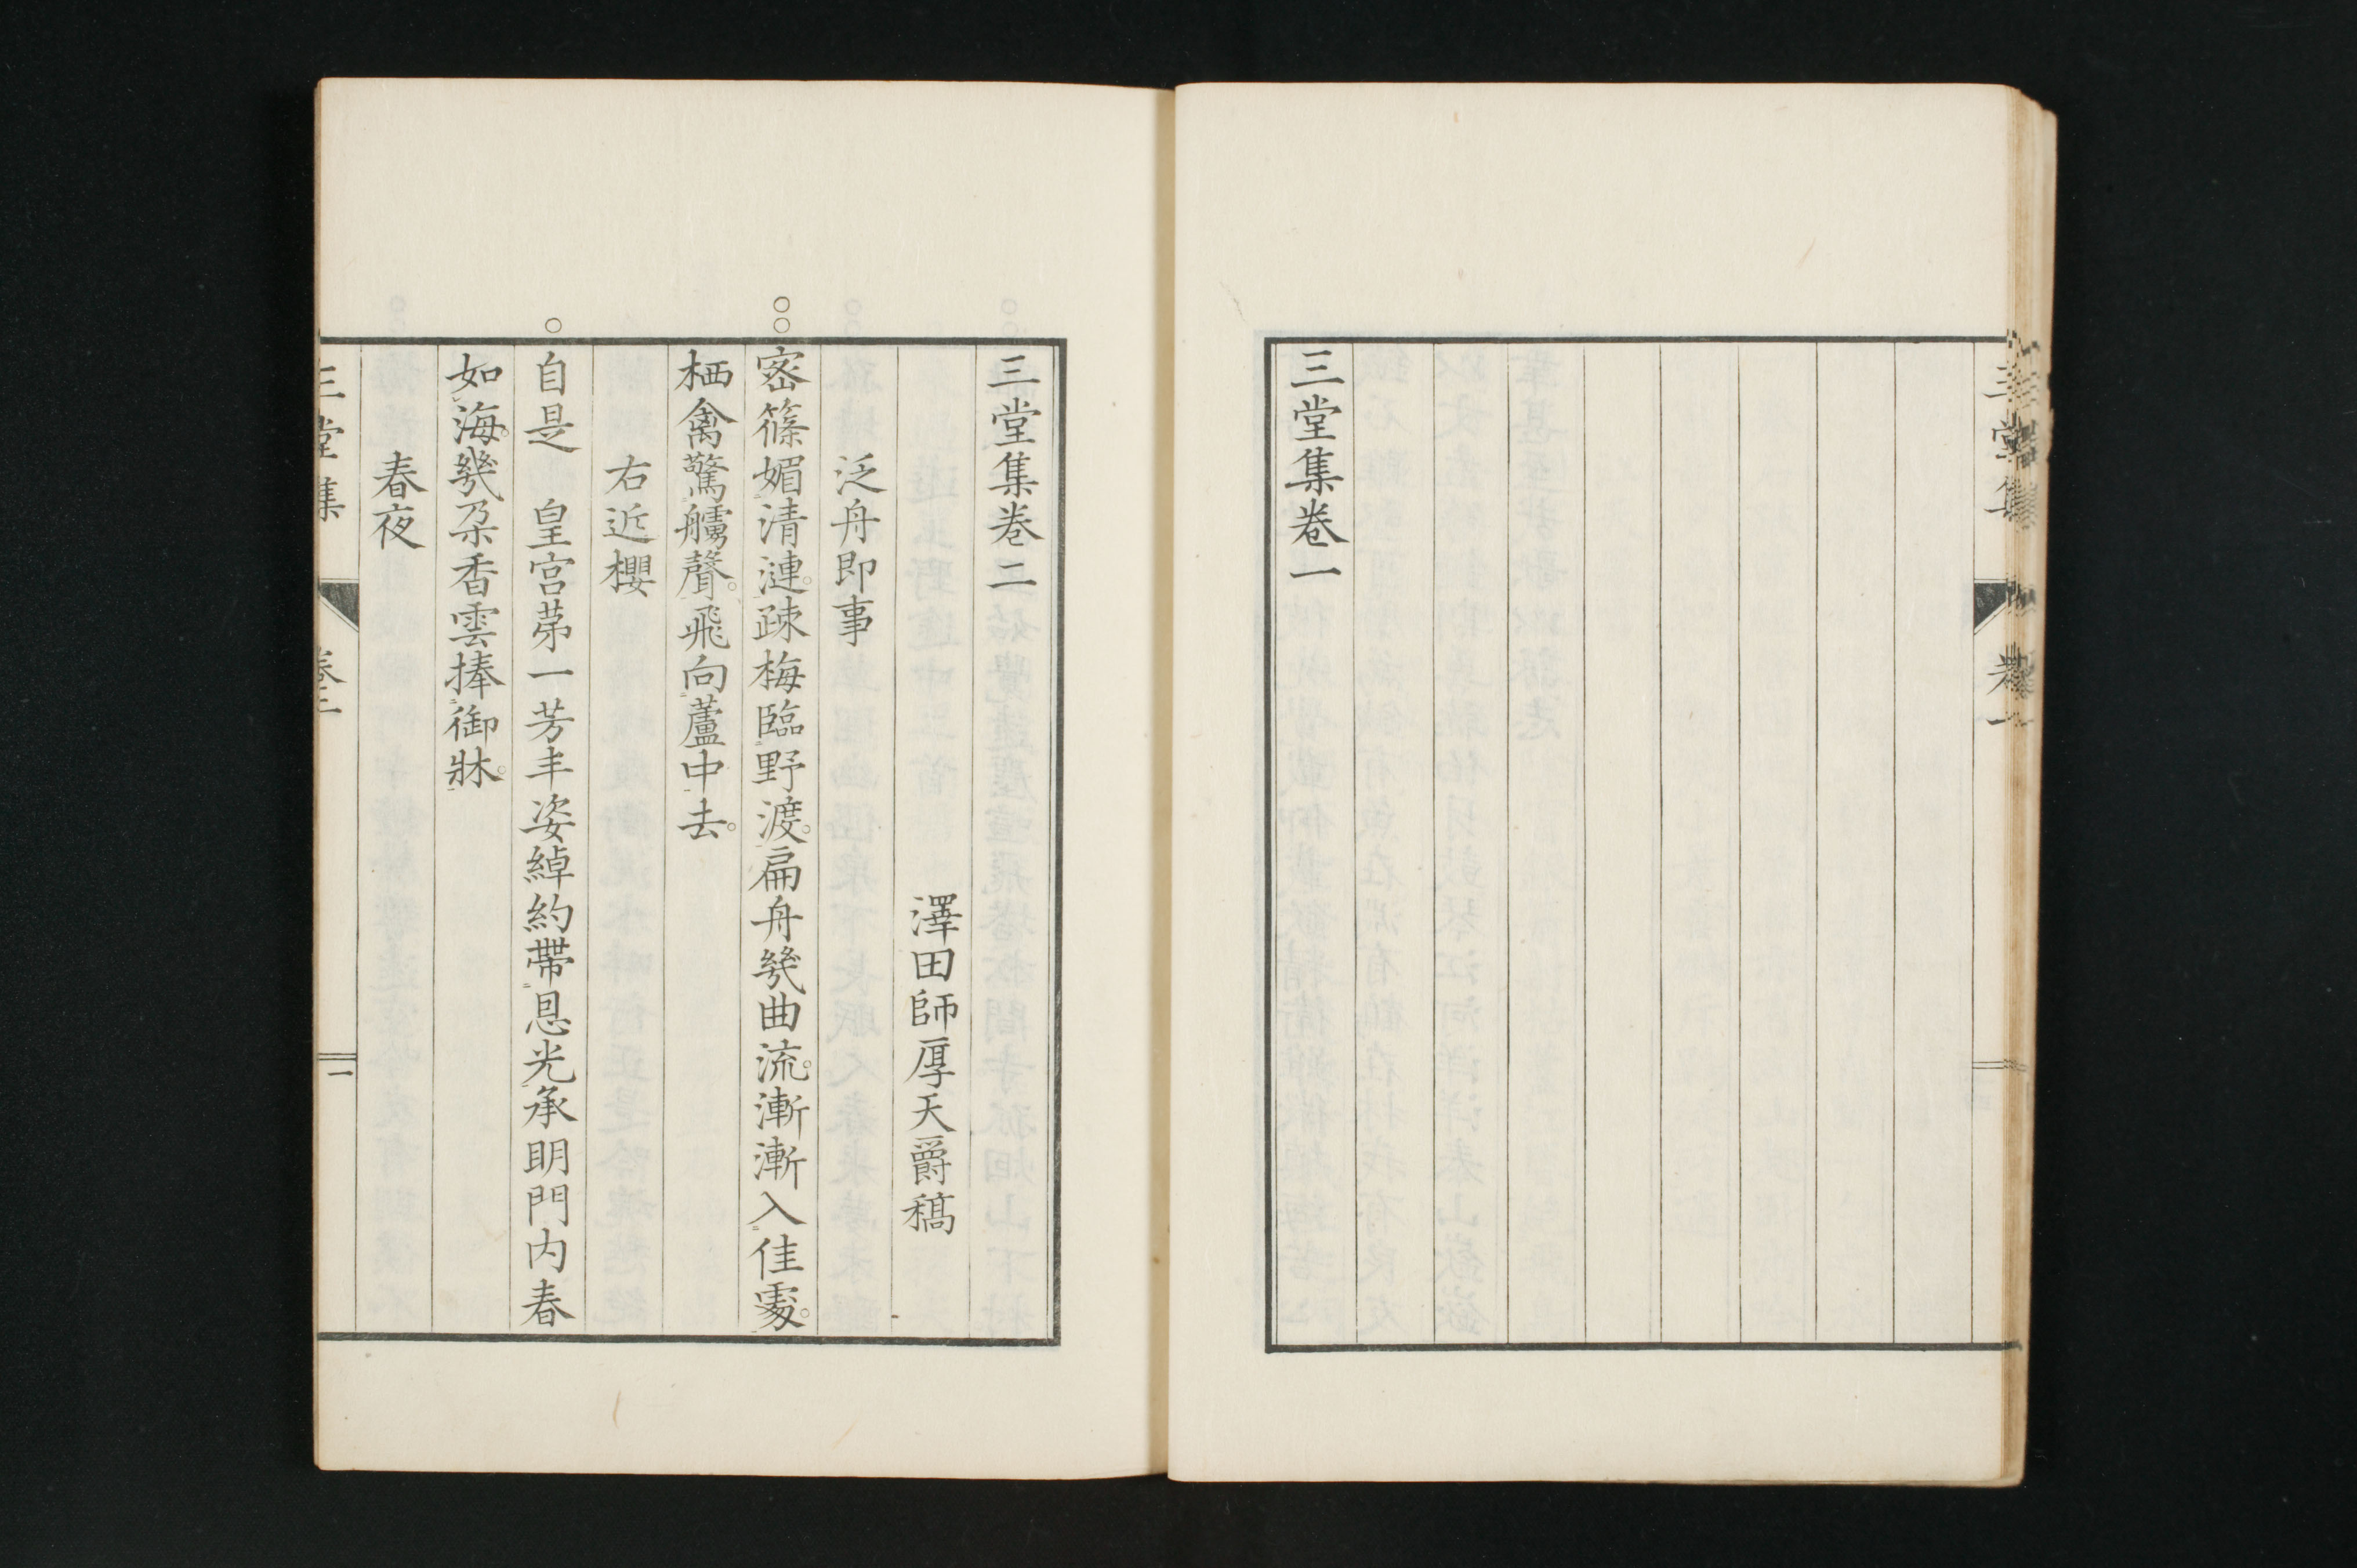 三堂集卷一
三堂集 卷一
三堂集卷二
澤田師厚天爵稿
泛舟即事
○○密篠媚清漣。疎梅臨野渡。扁舟幾曲流。漸漸入佳處。
栖禽驚艣聲。飛向蘆中去。
右近櫻
○自是 皇宮苐一芳丰姿綽約帶恩光承明門內春
如海。幾朶香雲捧御牀。
春夜
三堂集 卷二 一